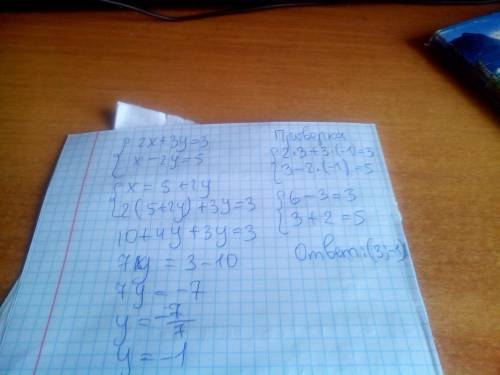 {2x+3y=3
{x-2y=5
{x=5+2y
{2(5+2y)+3y=3
10+4y+3y=3
7y=3-10
7y=-7
y=-7/7
y=-1
Проверка
{2·3+3·(-1)=3
{3-2·(-1)=5
{6-3=3
{3+2=5
Ответ:(3;-1)